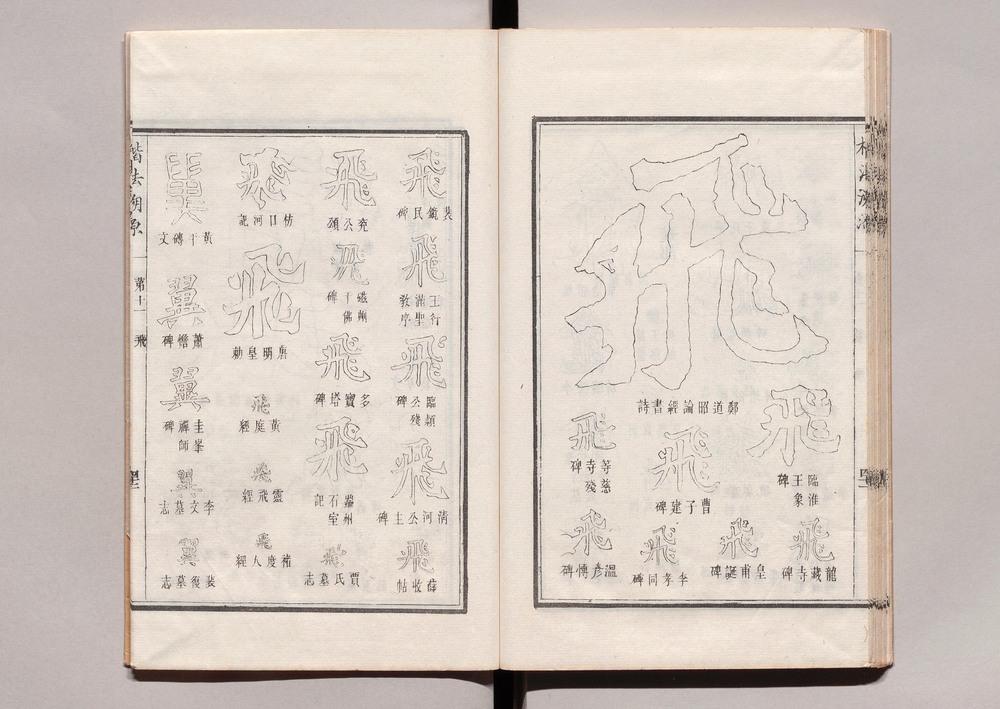 飛
鄭道昭論經書詩
飛
臨淮王象碑
飛
曹子建碑
飛
等慈寺殘碑
飛
龍藏寺碑
飛
皇甫誕碑
飛
李孝同碑
飛
溫彥博碑
飛
裴鏡民碑
飛
王行滿聖教序
飛
臨潁公殘碑
飛
清河公主碑
飛
薛收帖
飛
兗公頌
飛
磁州千佛碑
飛
多寶塔碑
飛
麗州石室記
飛
賈氏墓志
飛
枋口河記
飛
唐明皇勅
飛
黃庭經
飛
靈飛經
飛
褚度人經
翼
黃干磚文
翼
蕭憺碑
翼
圭峯禪師碑
翼
李文墓志
翼
裴復墓志
楷法溯源
第十一
飛